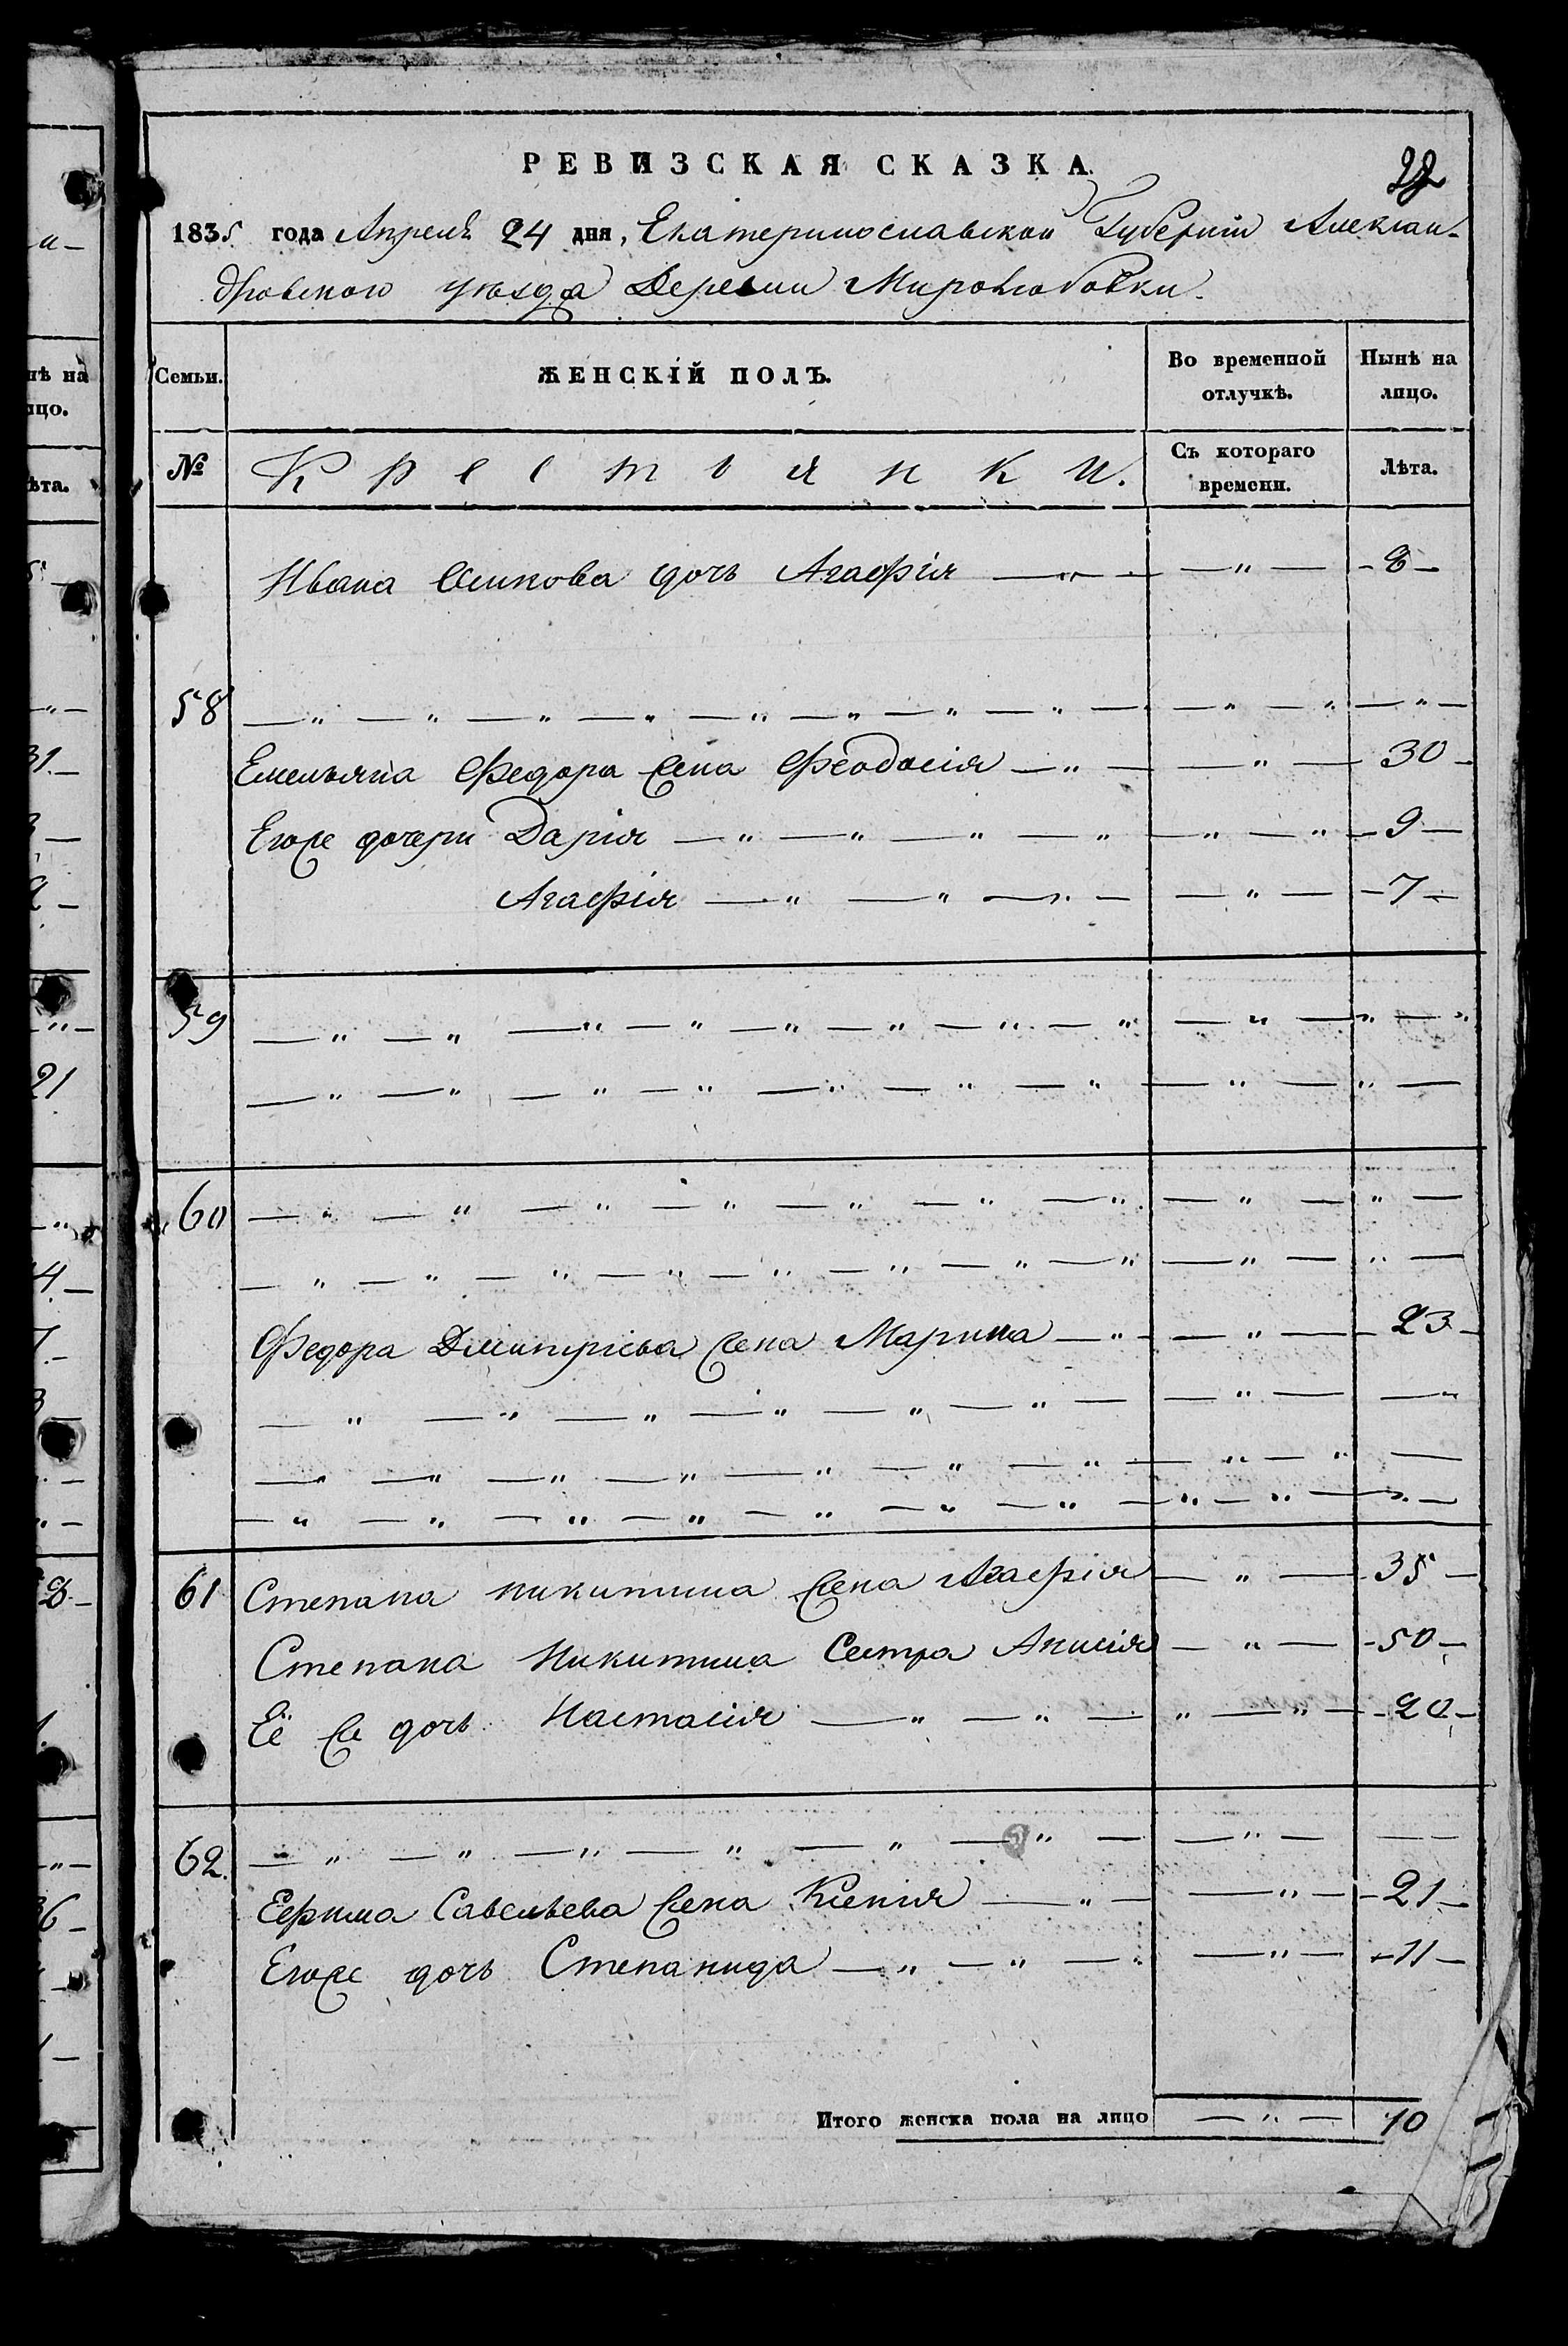 РЕВИЗСКАЯ СКАЗКА.
22
1835 года Апреля 24 дня, Екатеринославской Губерніи Алексан-
дровского уѣзда Деревни Миролюбовки.
Семьи. ЖЕНСКІЙ ПОЛЪ. Во временной отлучкѣ. Нынѣ на лицо.
№ Крестьянки. Съ котораго времени. Лѣта.
Ивана Осипова дочь Агафія — " — — " — - 8 -
58 — " — " — " — " — " — " — " — " — — " — " — " —
Емельяна Федора жена Феодосія — " — — " — 30 -
Егоже дочери Дарія — " — " — " — " — " — " - 9 -
Агафія — " — " — " — — " — - 7 -
59 — " — " — " — " — " — " — " — " — " — " — "
— " — " — " — " — " — " — " — " — " —
60 — " — " — " — " — " — " — " — " — " —
— " — " — " — " — " — " — " — " — " — " —
Федора Дмитріева жена Марина — " — — " — 23 -
— " — " — " — " — " — " — — " — — "
— " — " — " — " — " — " — " — " — " —
— " — " — " — " — " — " — " — " — " — " —
61 Степана никитина жена Агафія — " — 35 -
Степана Никитина Сестра Анисія — " — - 50 -
Её же дочь Настасія — " — " — " — " — - 20 -
62. — " — " — " — " — " — " — — " — — —
Ефима Савельева жена Ксенія — " — — " — - 21 -
Егоже дочь Степанида — " — " — " — " — - 11 -
Итого женска пола на лицо — " — 10